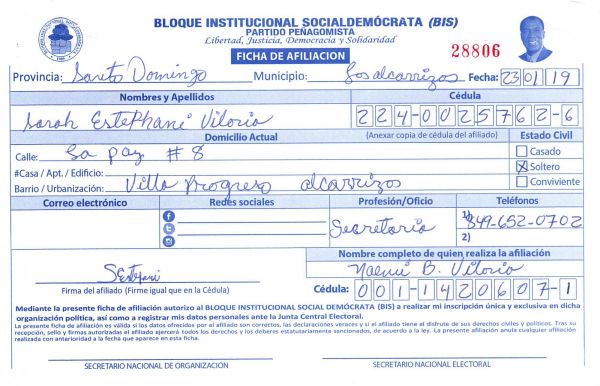 BLOQUE INSTITUCIONAL SOCIALDEMÓCRATA (BIS)
PARTIDO PEÑAGOMISTA
Libertad, Justicia, Democracia y Solidaridad
FICHA DE AFILIACION
28806
Provincia: Santo Domingo Municipio: Los alcarrizos Fecha: 23 01 19
Nombres y Apellidos Cédula
Sarah Estephani Viloria 224-0025762-6
Domicilio Actual (Anexar copia de cédula del afiliado) Estado Civil
Calle: La paz # 8 Casado
#Casa / Apt. / Edificio: X Soltero
Barrio / Urbanización: Villa Progreso alcarrizos Conviviente
Correo electrónico Redes sociales Profesión/Oficio Teléfonos
Secretaria 1) 849-652-0702
2)
Nombre completo de quien realiza la afiliación
Noemi B. Viloria
SEstefani
Firma del afiliado (Firme igual que en la Cédula) Cédula: 001-1420607-1
Mediante la presente ficha de afiliación autorizo al BLOQUE INSTITUCIONAL SOCIAL DEMÓCRATA (BIS) a realizar mi inscripción única y exclusiva en dicha
organización política, así como a registrar mis datos personales ante la Junta Central Electoral.
La presente ficha de afiliación es válida si los datos ofrecidos por el afiliado son correctos, las declaraciones veraces y si el afiliado tiene el disfrute de sus derechos civiles y políticos. Tras su
recepción, sello y firmas autorizadas el afiliado ejercerá todos los derechos y los deberes estatutariamente sancionados, de acuerdo a la ley. La presente afiliación anula cualquier afiliación
realizada con anterioridad a la fecha que aparece en esta ficha.
SECRETARIO NACIONAL DE ORGANIZACIÓN SECRETARIO NACIONAL ELECTORAL